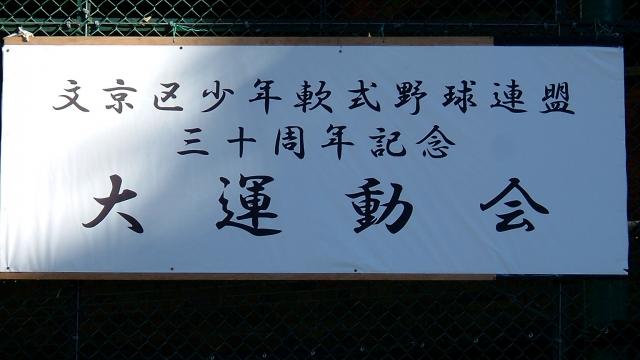 文京区少年軟式野球連盟
三十周年記念
大運動会